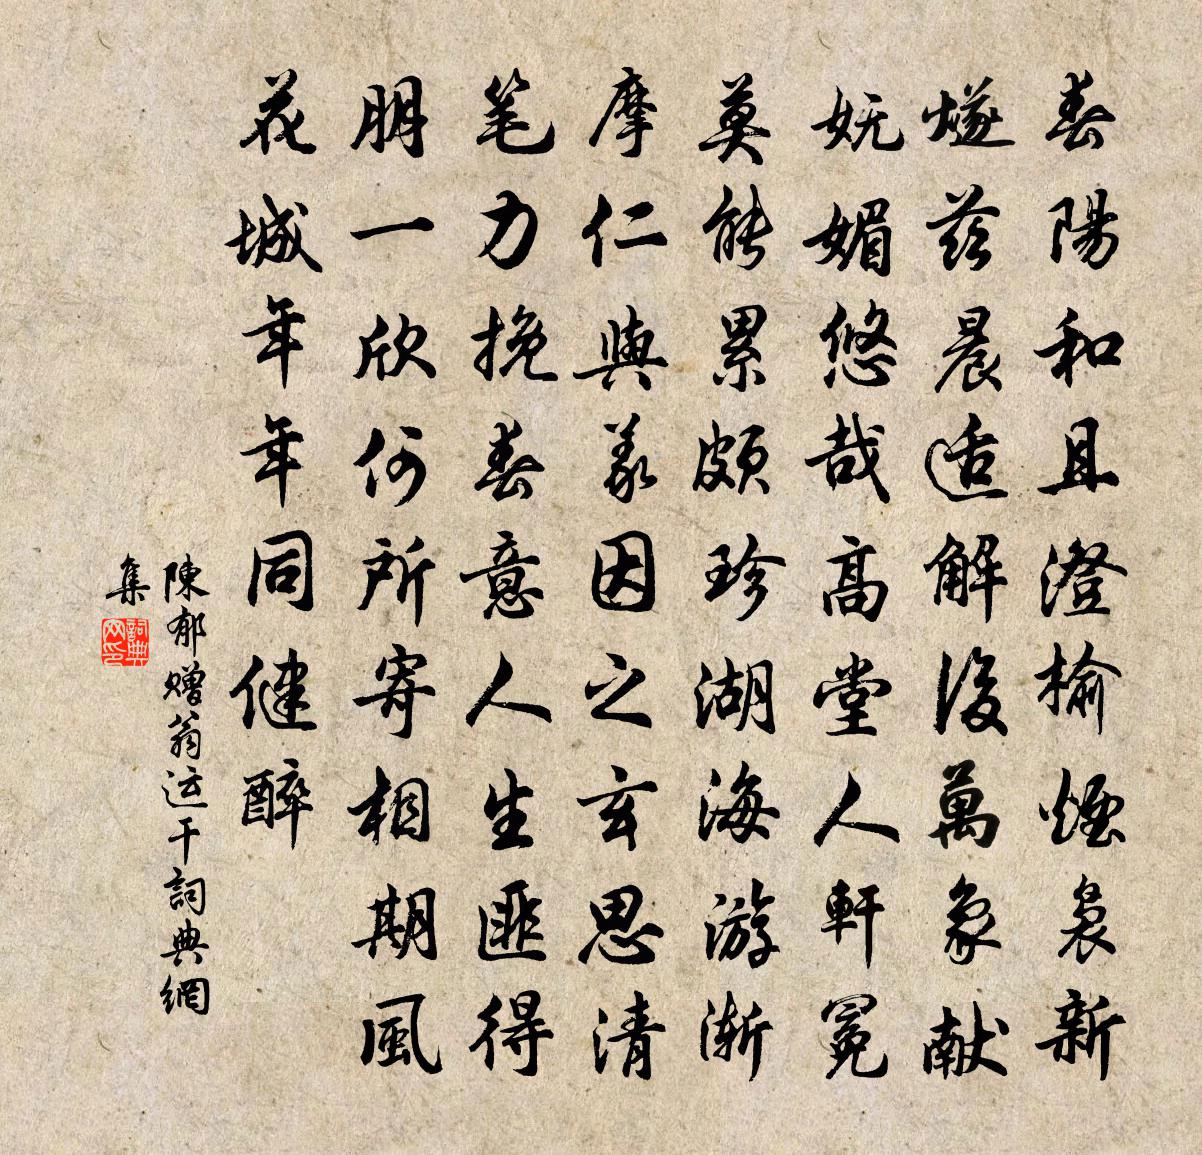 春陽和且澄榆煙裊新
燧茲晨适解後萬象献
妩媚悠哉高堂人軒冕
莫能累頗珍湖海游漸
摩仁與義因之玄思清
笔力挽春意人生匪得
朋一欣何所寄相期風
花城年年同健醉
陳郁赠翁运干詞典網
集
詞典网印